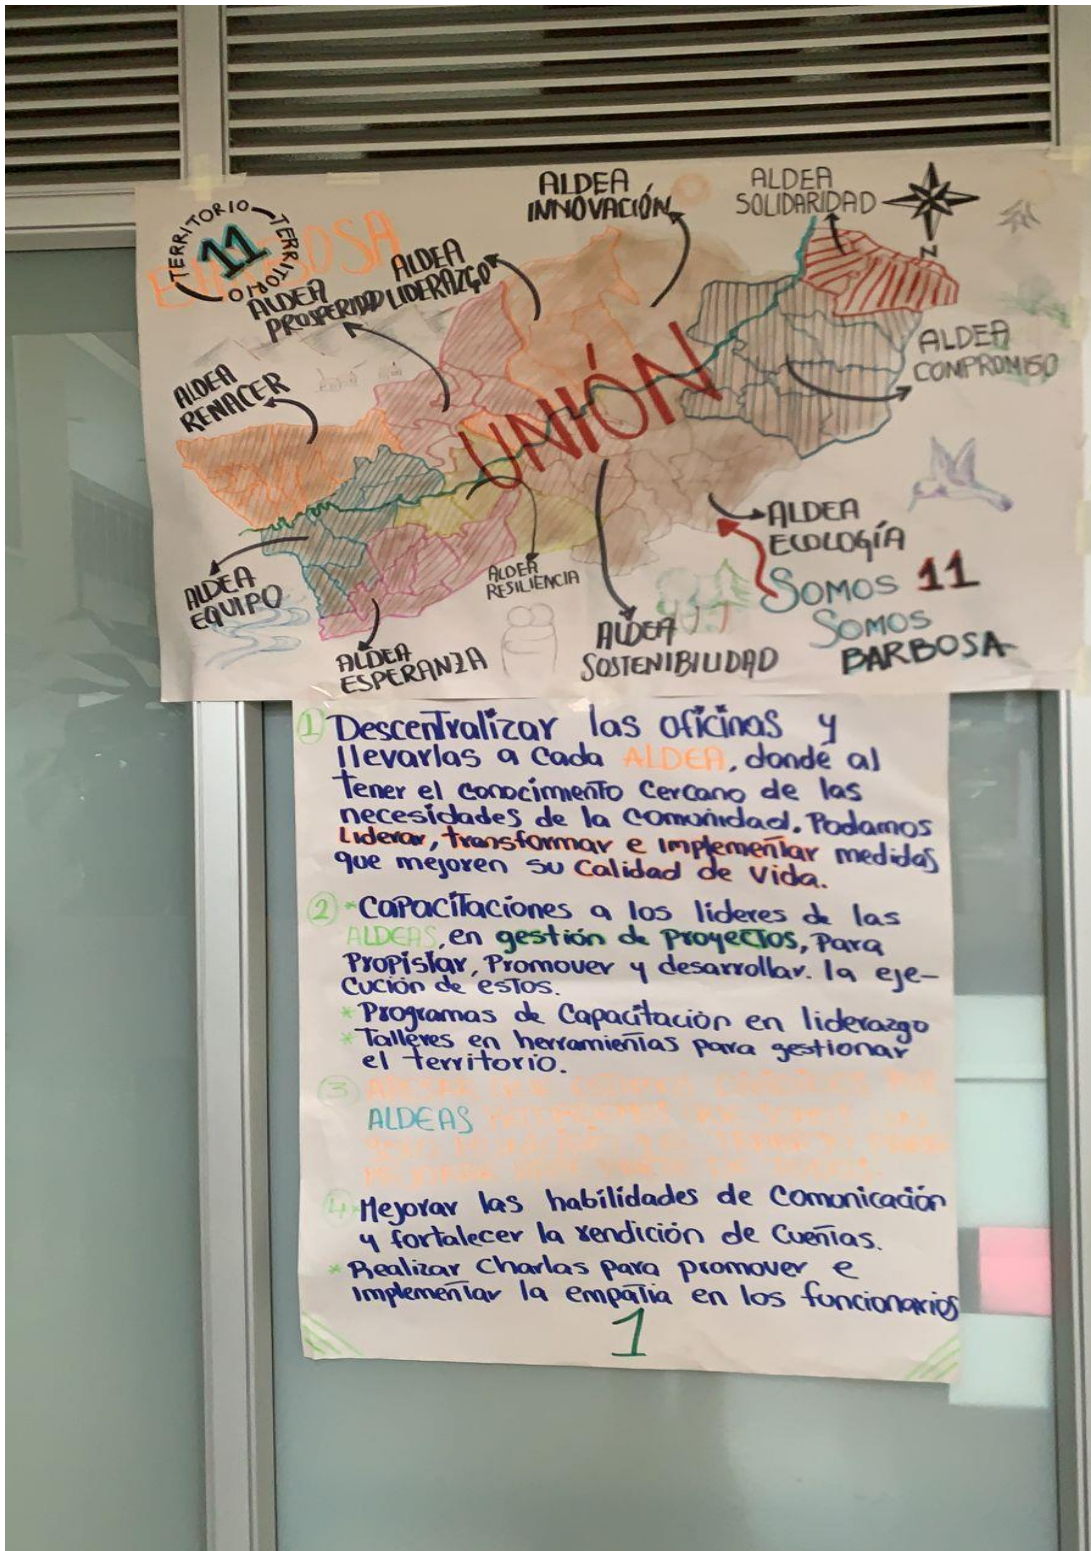 TERRITORIO TERRITORIO
11
BARBOSA
ALDEA
INNOVACIÓN
ALDEA
SOLIDARIDAD
N
ALDEA
LIDERAZGO
ALDEA
PROSPERIDAD
ALDEA
RENACER
ALDEA
COMPROMISO
UNIÓN
ALDEA
ECOLOGÍA
ALDEA
EQUIPO
ALDEA
RESILIENCIA
ALDEA
ESPERANZA
ALDEA
SOSTENIBILIDAD
SOMOS 11
SOMOS
BARBOSA
1 Descentralizar las oficinas y
llevarlas a cada ALDEA, donde al
tener el conocimiento cercano de las
necesidades de la comunidad. Podamos
Liderar, transformar e implementar medidas
que mejoren su calidad de vida.
2 * Capacitaciones a los lideres de las
ALDEAS, en gestión de Proyectos, Para
Propisiar, Promover y desarrollar. la eje-
cución de estos.
* Programas de Capacitación en liderazgo
* Talleres en herramientas para gestionar
el territorio.
3
ALDEAS
4 * Mejorar las habilidades de comunicación
y fortalecer la rendición de cuentas.
* Realizar Charlas para promover e
implementar la empatia en los funcionarios
1